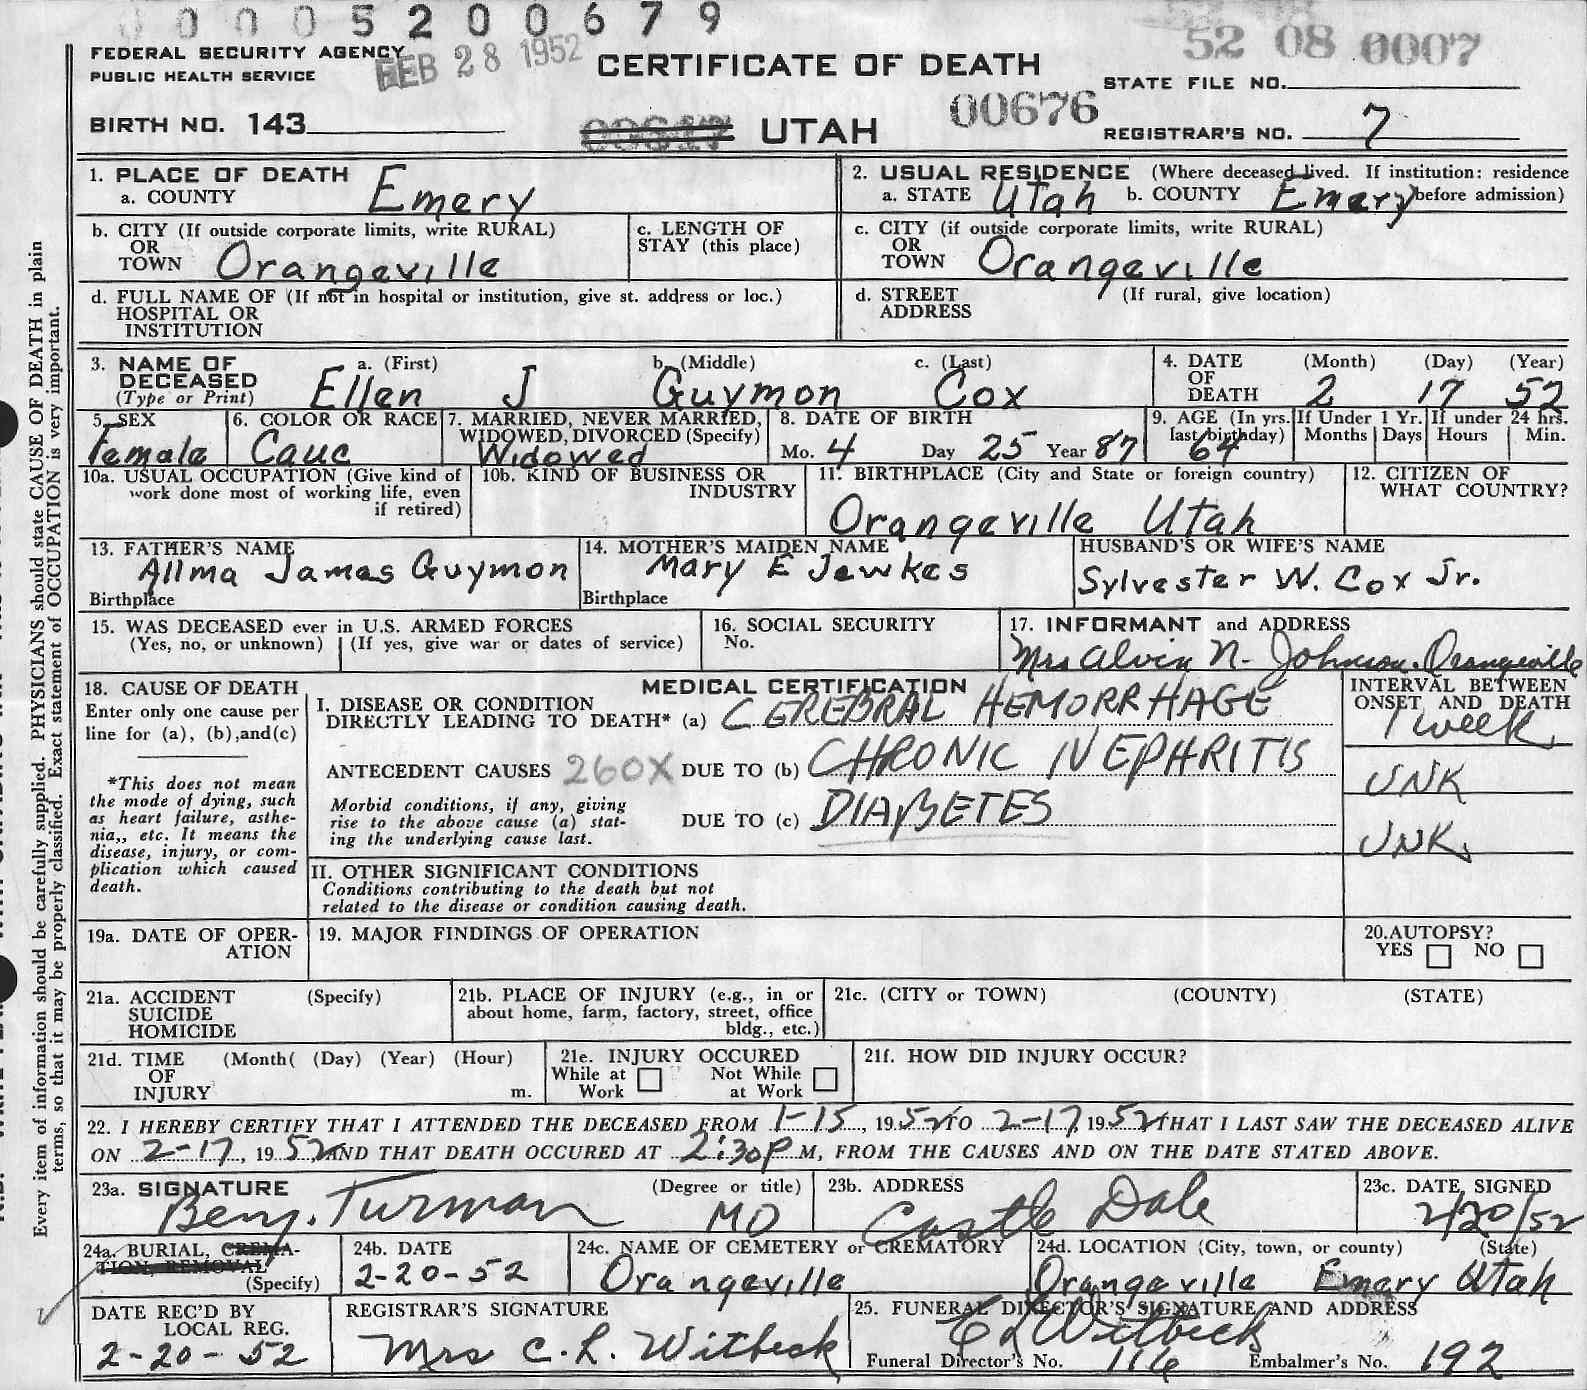 00005200679
FEDERAL SECURITY AGENCY
PUBLIC HEALTH SERVICE
FEB 28 1952
CERTIFICATE OF DEATH
52 08 0007
STATE FILE NO.
BIRTH NO. 143
UTAH
00676
REGISTRAR'S NO. 7
1. PLACE OF DEATH
a. COUNTY Emery
2. USUAL RESIDENCE (Where deceased lived. If institution: residence
a. STATE Utah b. COUNTY Emery before admission)
b. CITY (If outside corporate limits, write RURAL)
OR
TOWN Orangeville
c. LENGTH OF
STAY (this place)
c. CITY (if outside corporate limits, write RURAL)
OR
TOWN Orangeville
d. FULL NAME OF (If not in hospital or institution, give st. address or loc.)
HOSPITAL OR
INSTITUTION
d. STREET (If rural, give location)
ADDRESS
3. NAME OF
DECEASED
(Type or Print)
a. (First) b. (Middle) c. (Last)
Ellen J Guymon Cox
4. DATE (Month) (Day) (Year)
OF
DEATH 2 17 52
5. SEX
Female
6. COLOR OR RACE
Cauc
7. MARRIED, NEVER MARRIED,
WIDOWED, DIVORCED (Specify)
Widowed
8. DATE OF BIRTH
Mo. 4 Day 25 Year 87
9. AGE (In yrs.
last birthday)
64
If Under 1 Yr.
Months Days
If under 24 hrs.
Hours Min.
10a. USUAL OCCUPATION (Give kind of
work done most of working life, even
if retired)
10b. KIND OF BUSINESS OR
INDUSTRY
11. BIRTHPLACE (City and State or foreign country)
Orangeville Utah
12. CITIZEN OF
WHAT COUNTRY?
13. FATHER'S NAME
Allma James Guymon
Birthplace
14. MOTHER'S MAIDEN NAME
Mary E Jewkes
Birthplace
HUSBAND'S OR WIFE'S NAME
Sylvester W. Cox Jr.
15. WAS DECEASED ever in U.S. ARMED FORCES
(Yes, no, or unknown) (If yes, give war or dates of service)
16. SOCIAL SECURITY
No.
17. INFORMANT and ADDRESS
Mrs Alvin N. Johnson. Orangeville
18. CAUSE OF DEATH
Enter only one cause per
line for (a), (b),and(c)
*This does not mean
the mode of dying, such
as heart failure, asthe-
nia,, etc. It means the
disease, injury, or com-
plication which caused
death.
MEDICAL CERTIFICATION
I. DISEASE OR CONDITION
DIRECTLY LEADING TO DEATH* (a) CEREBRAL HEMORRHAGE
ANTECEDENT CAUSES 260X DUE TO (b) CHRONIC NEPHRITIS
Morbid conditions, if any, giving
rise to the above cause (a) stat-
ing the underlying cause last.
DUE TO (c) DIABETES
INTERVAL BETWEEN
ONSET AND DEATH
1 week
UNK
UNK.
II. OTHER SIGNIFICANT CONDITIONS
Conditions contributing to the death but not
related to the disease or condition causing death.
19a. DATE OF OPER-
ATION
19. MAJOR FINDINGS OF OPERATION
20.AUTOPSY?
YES NO
21a. ACCIDENT (Specify)
SUICIDE
HOMICIDE
21b. PLACE OF INJURY (e.g., in or
about home, farm, factory, street, office
bldg., etc.)
21c. (CITY or TOWN) (COUNTY) (STATE)
21d. TIME (Month( (Day) (Year) (Hour)
OF
INJURY m.
21e. INJURY OCCURED
While at Not While
Work at Work
21f. HOW DID INJURY OCCUR?
22. I HEREBY CERTIFY THAT I ATTENDED THE DECEASED FROM 1-15, 1952 TO 2-17, 1952 THAT I LAST SAW THE DECEASED ALIVE
ON 2-17, 1952 AND THAT DEATH OCCURED AT 2:30P M, FROM THE CAUSES AND ON THE DATE STATED ABOVE.
23a. SIGNATURE (Degree or title)
Benj. Turman MD
23b. ADDRESS
Castle Dale
23c. DATE SIGNED
2/20/52
24a. BURIAL, CREMA-
TION, REMOVAL
(Specify)
24b. DATE
2-20-52
24c. NAME OF CEMETERY or CREMATORY
Orangeville
24d. LOCATION (City, town, or county) (State)
Orangeville Emery Utah
DATE REC'D BY
LOCAL REG.
2-20-52
REGISTRAR'S SIGNATURE
Mrs C. L. Witbeck
25. FUNERAL DIRECTOR'S SIGNATURE AND ADDRESS
C L Witbeck
Funeral Director's No. 116 Embalmer's No. 192
Every item of information should be carefully supplied. PHYSICIANS should state CAUSE OF DEATH in plain
terms, so that it may be properly classified. Exact statement of OCCUPATION is very important.